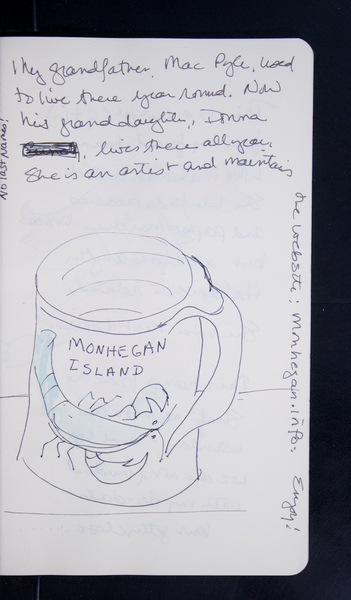 My grandfather, Mac Pyle, used
to live there year round. Now
his granddaughter, Donna
, lives there all year.
She is an artist and maintains
the website: monhegan.info. Enjoy!
No last names!
MONHEGAN
ISLAND